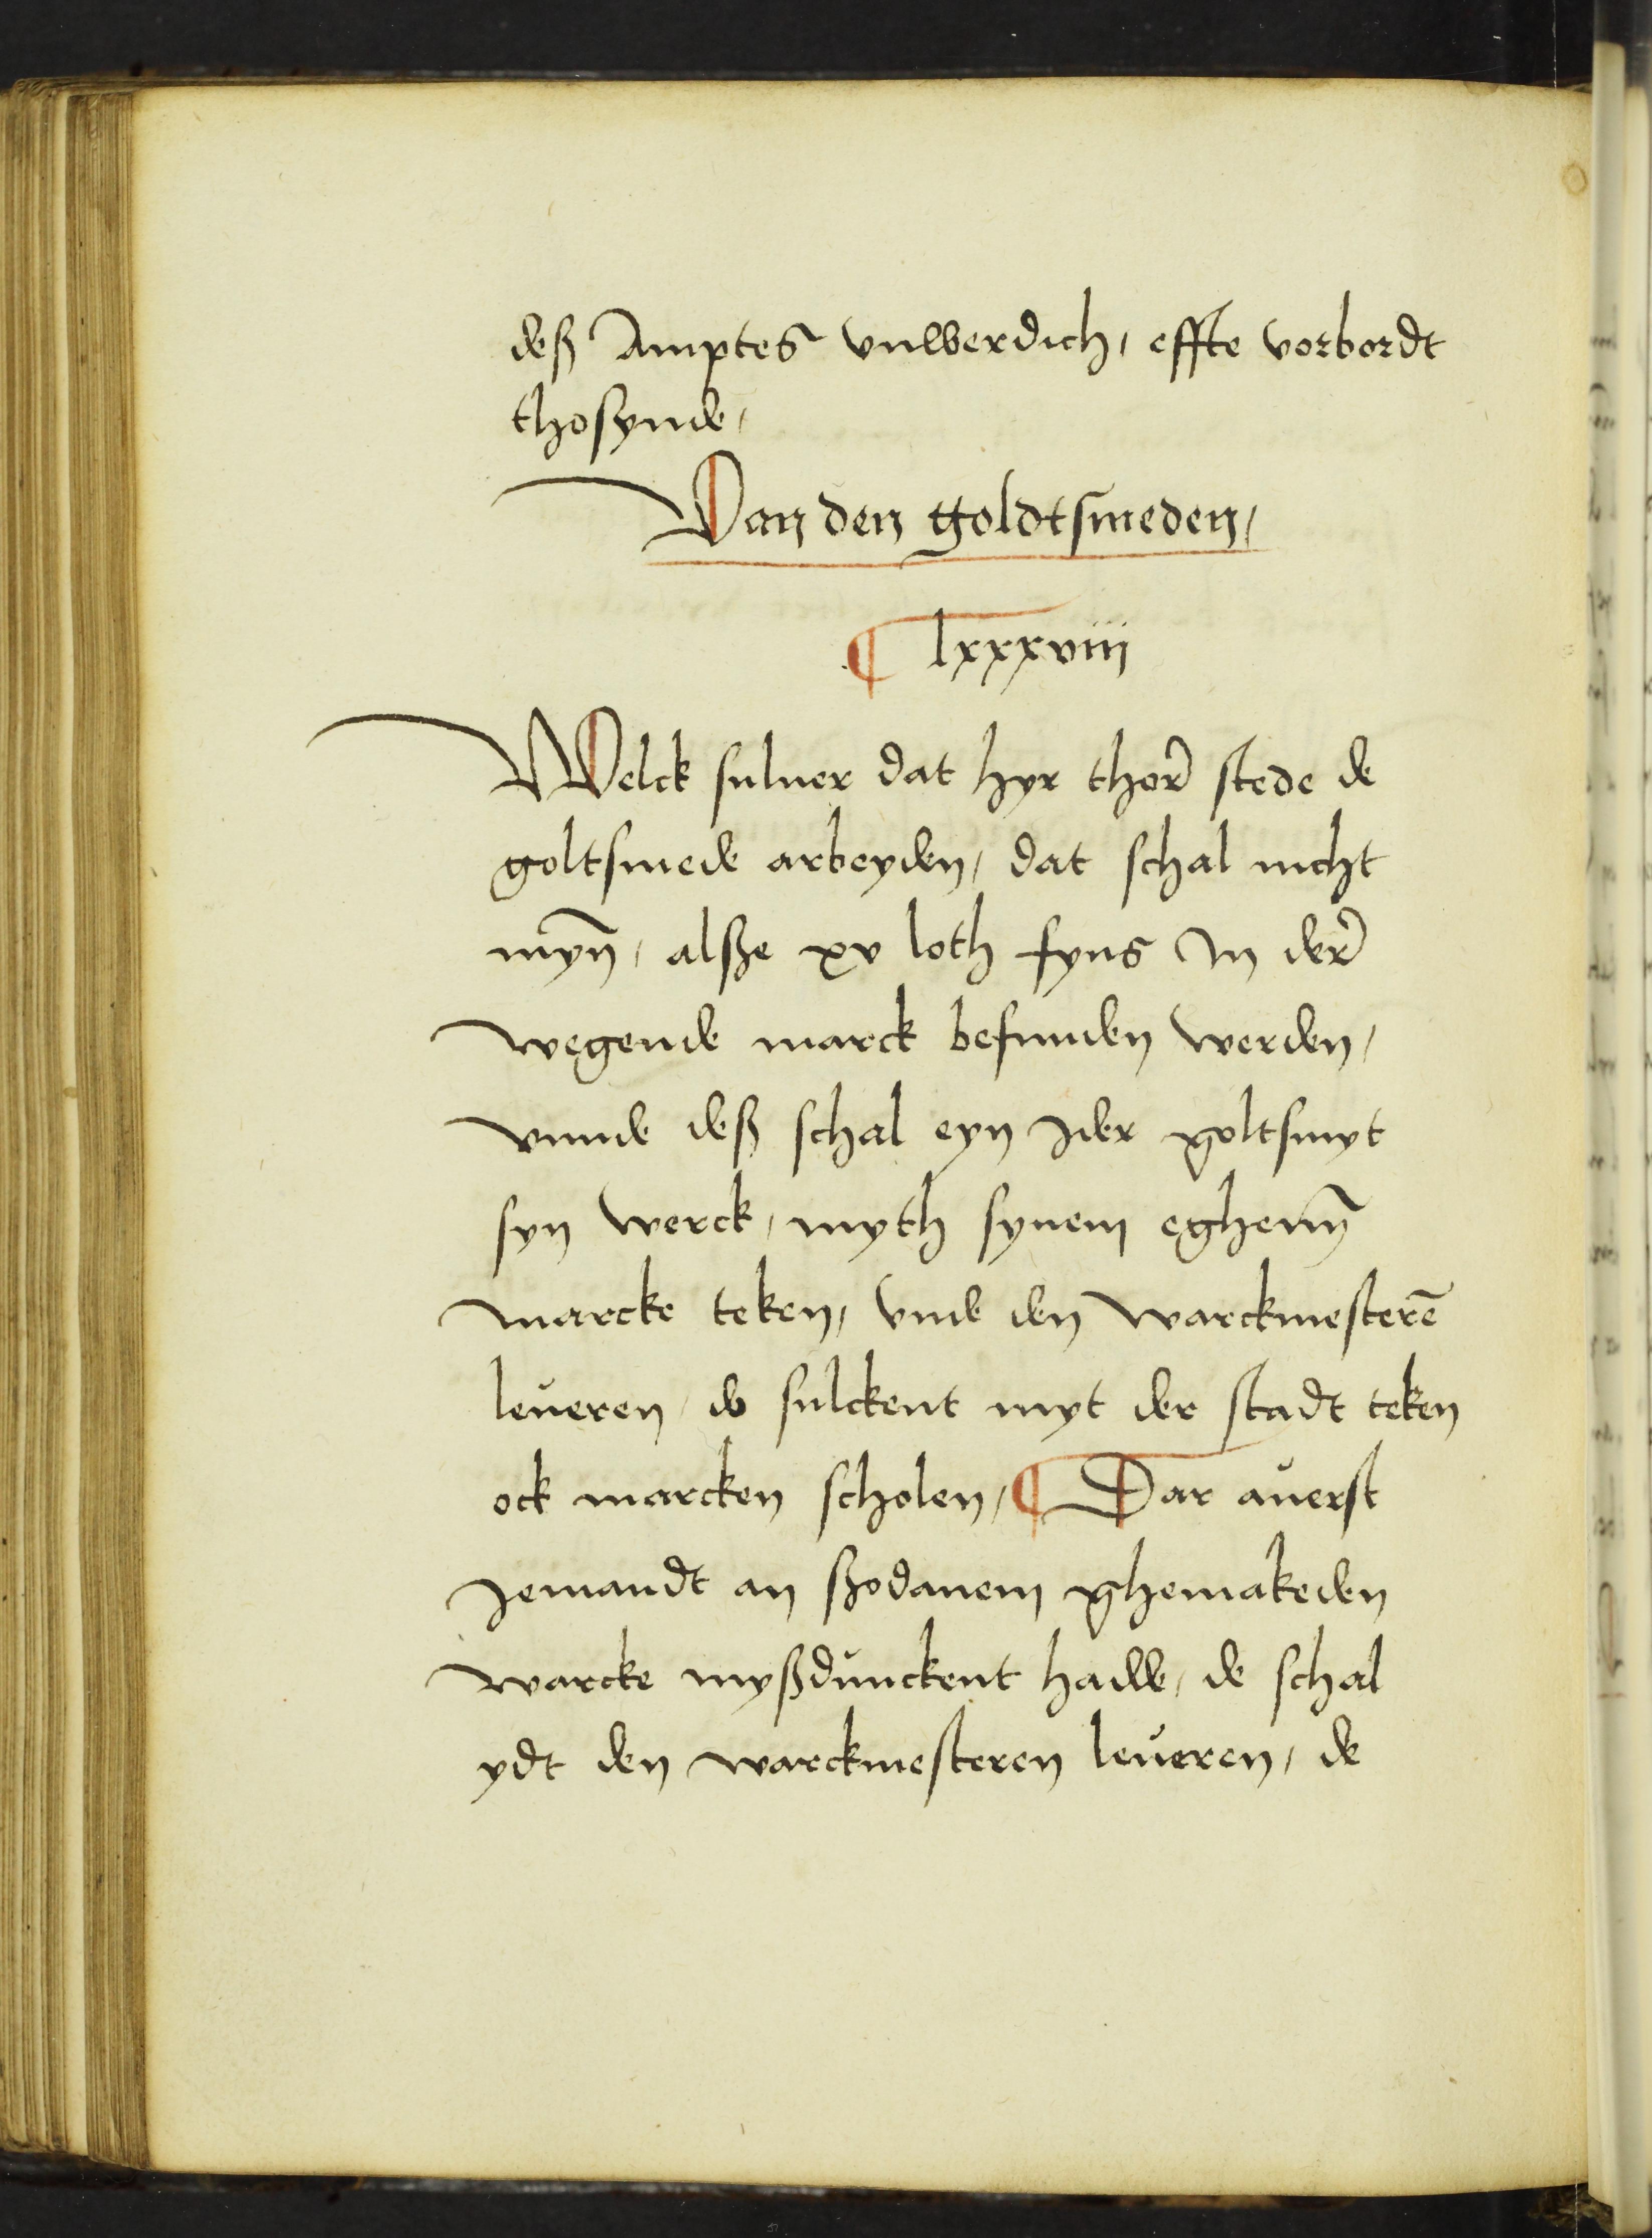 deß Amptes vnwerdich, effte vorbordt
thosynde,
Van den goldtsmeden,
¶ lxxxviii
Welck suluer dat hyr ther̃ stede de
goltsmede arbeyden, dat schal nicht
myn̄, alße xv loth fyns In der̃
wegende marck befunden werden,
vnnde deß schal eyn Jder goltsmyt
syn werck, myth synem eghenn̄
marcke teken, vnde den warckmesterē
leueren, de sulckent myt der stadt teken
ock marcken scholen, ¶ Dar auerst
Jemandt an ßodanem ghemakeden
warcke myßdunckent hadde, de schal
ydt den warckmesteren leueren, de